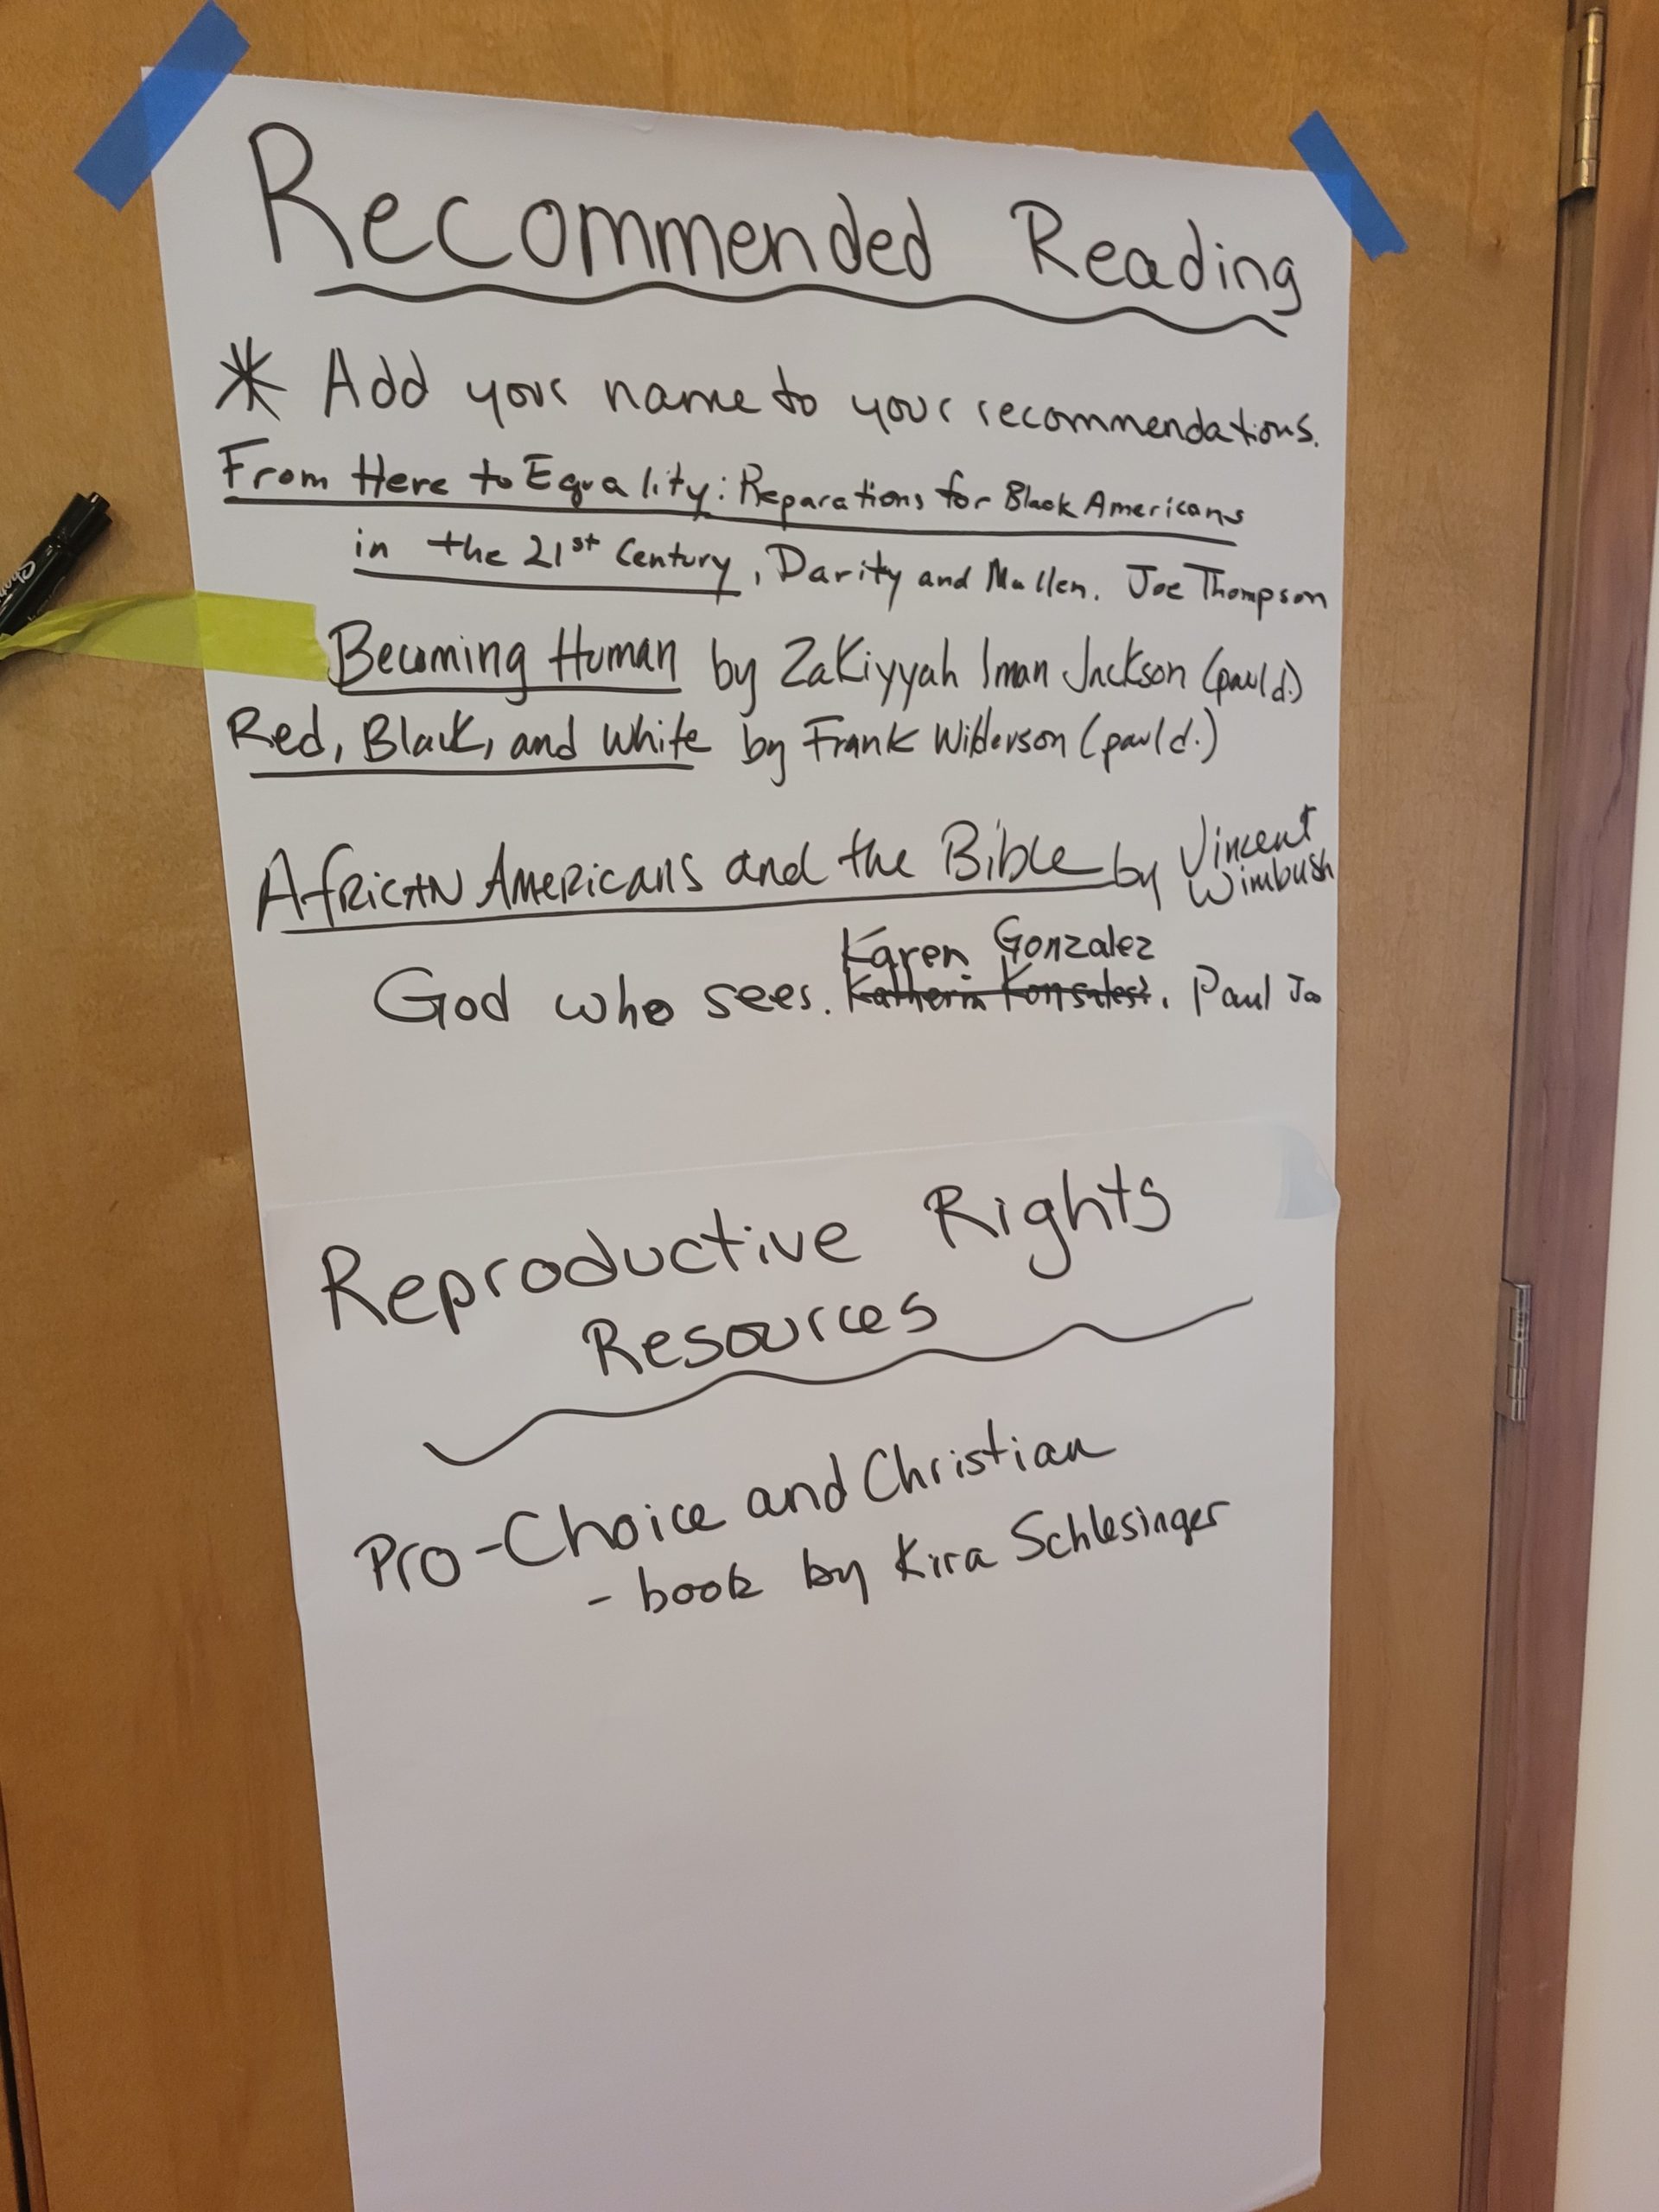 Recommended Reading
* Add your name to your recommendations.
From Here to Equality: Reparations for Black Americans
in the 21st Century, Darity and Mullen. Joe Thompson
Becoming Human by Zakiyyah Iman Jackson (paul d.)
Red, Black, and White by Frank Wilderson (paul d.)
African Americans and the Bible by Vincent
Wimbush
Karen Gonzalez
God who sees. Katherin Konsales?. Paul Jo
Reproductive Rights
Resources
Pro-Choice and Christian
- book by Kira Schlesinger